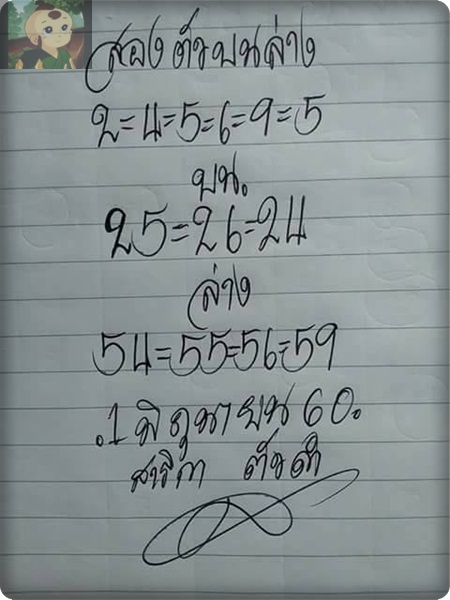 สองตัวบนล่าง
2=4=5=6=9=5
บน.
25=26=24
ล่าง
54=55=56=59
.1 มิถุนายน 60.
สาริกา ตันดำ